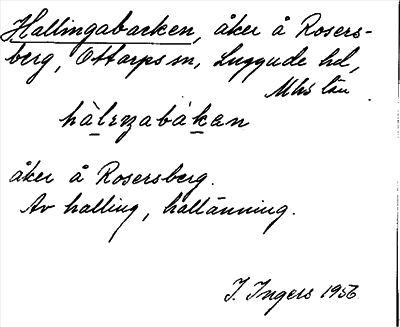 Hallingabacken, åker å Rosers-
berg, Ottarps sn, Luggude hd,
Mhs län
hàlɩŋabákɐn
åker å Rosersberg.
Av halling, hallänning.
I. Ingers 1956